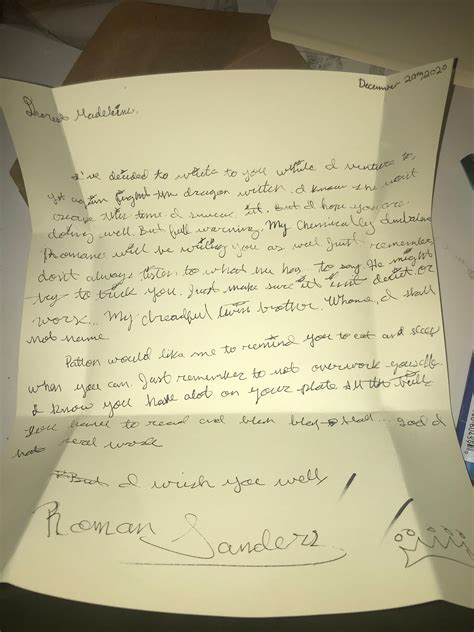 December 20th 2020
Dearest Madeline,
I've decided to write to you while I venture to,
yet again fight the dragon witch. I know she wont
escape this time I swear it. But I hope you are
doing well. But full warning. My Chemically Imbalanced
Romance will be writing you as well just remember
dont always listen to what he has to say. He might
try to trick you. Just make sure it isnt deceit or
worse... My dreadful twin brother. Whome, I shall
not name.
Patton would like me to remind you to eat and sleep
when you can. Just remember to not overwork yourself.
I know you have alot on your plate
you have to read and blah blah blah... god I
hate real work
I wish you well
Roman Sanders